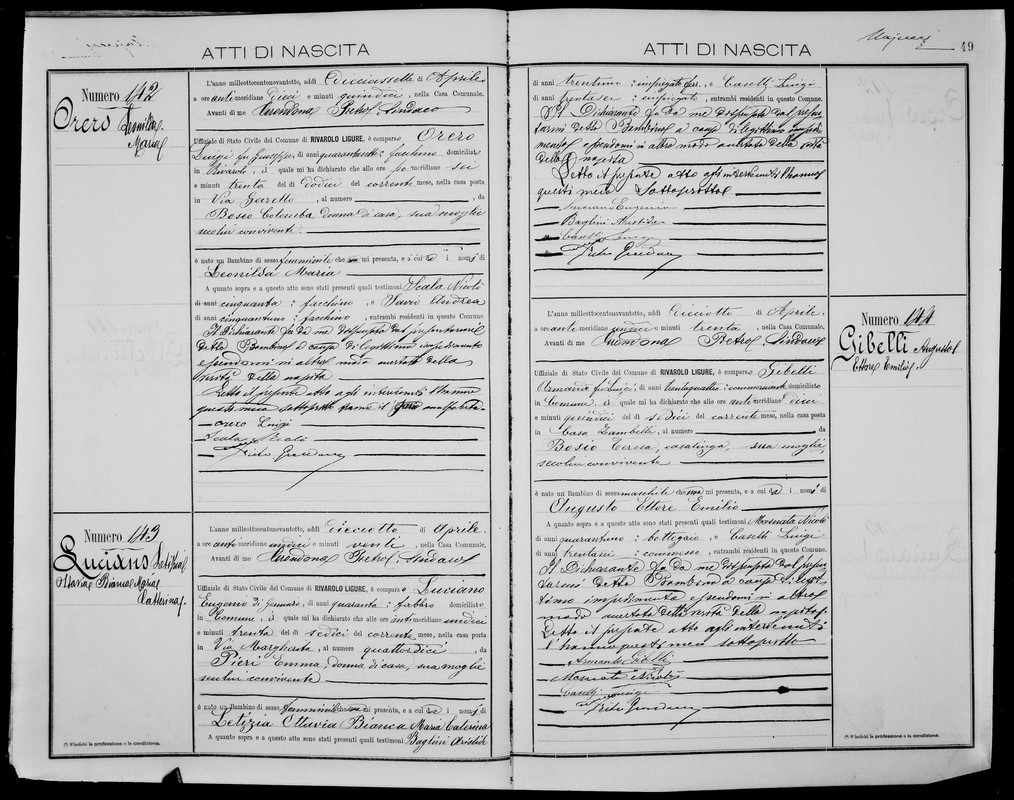 ATTI DI NASCITA
Numero 142
Orero Leonilda
Maria
L'anno milleottocentonovantotto, addì Diciassette di Aprile
a ore anti meridiane dieci e minuti quindici, nella Casa Comunale.
Avanti di me Ghirondona Pietro, Sindaco
Uffiziale di Stato Civile del Comune di RIVAROLO LIGURE, è comparso Orero
Luigi fu Giuseppe, di anni quarantotto: facchino domiciliato
in Rivarolo, il quale mi ha dichiarato che alle ore po meridiane sei
e minuti trenta del dì dodici del corrente mese, nella casa posta
in Via Garello, al numero , da
Bosio Colomba donna di casa, sua moglie
seco lui convivente.
è nato un Bambino di sesso femminile che mi presenta, e a cui dà i nomi di
Leonilda Maria
A quanto sopra e a questo atto sono stati presenti quali testimoni Scala Nicolò
di anni cinquanta: facchino, e Savio Andrea
di anni cinquantuno: facchino, entrambi residenti in questo Comune.
Il Dichiarante fu da me dispensato dal presentarmi
detta Bambina a causa di legittimo impedimento
essendomi in altro modo accertato della
verità della nascita
Letto il presente atto agli intervenuti l'hanno
questi meco sottoscritto
Orero Luigi
Scala Nicolò
Numero 143
Luciano Letizia
Ottavia Bianca Maria
Catterina
L'anno millottocentonovantotto, addì diciotto di Aprile,
a ore anti meridiane undici e minuti venti, nella Casa Comunale.
Avanti di me Ghirondona Pietro, Sindaco
Uffiziale di Stato Civile del Comune di RIVAROLO LIGURE, è comparso Luciano
Eugenio di Gennaro, di anni quaranta: fabbro domiciliato
in Comune, il quale mi ha dichiarato che alle ore anti meridiane undici
e minuti trenta del dì sedici del corrente mese, nella casa posta
in Via Margherita, al numero quattordici, da
Pieri Emma, donna di casa, sua moglie
seco lui convivente
è nato un Bambino di sesso femminile che mi presenta, e a cui dà i nomi di
Letizia Ottavia Bianca Maria Caterina
A quanto sopra e a questo atto sono stati presenti quali testimoni Baglini Aristide
(*) S'indichi la professione o la condizione.
ATTI DI NASCITA
49
di anni trentuno: impiegato, e Caselli Luigi
di anni trentasei: impiegato, entrambi residenti in questo Comune.
Il Dichiarante fu da me dispensato dal presentarmi
detta Bambina a causa di legittimo impedimento
essendomi in altro modo accertato della verità
della nascita
Letto il presente atto agli intervenuti l'hanno
questi meco sottoscritto
Luciano Eugenio
Baglini Aristide
Caselli Luigi
Numero 144
Gibelli Augusto
Ettore Emilio.
L'anno millottocentonovantotto, addì diciotto di Aprile,
a ore anti meridiane undici e minuti trenta, nella Casa Comunale.
Avanti di me Ghirondona Pietro, Sindaco
Uffiziale di Stato Civile del Comune di RIVAROLO LIGURE, è comparso Gibelli
Armando fu Luigi, di anni trentaquattro: commerciante domiciliato
in Comune, il quale mi ha dichiarato che alle ore anti meridiane dieci
e minuti quindici del dì sedici del corrente mese, nella casa posta
in Casa Zambelli, al numero da
Bosio Teresa, casalinga, sua moglie,
seco lui convivente
è nato un Bambino di sesso maschile che mi presenta, e a cui dà i nomi di
Augusto Ettore Emilio
A quanto sopra e a questo atto sono stati presenti quali testimoni Masnata Nicolò
di anni quarantuno: bottegaio, e Caselli Luigi
di anni trentasei: commesso, entrambi residenti in questo Comune.
Il Dichiarante fu da me dispensato dal presentarmi
detto Bambino a causa di legittimo
impedimento essendomi in altro
modo accertato della verità della nascita
Letto il presente atto agli intervenuti
l'hanno questi meco sottoscritto
Armando Gibelli
Masnata Nicolò
Caselli Luigi
(*) S'indichi la professione o la condizione.